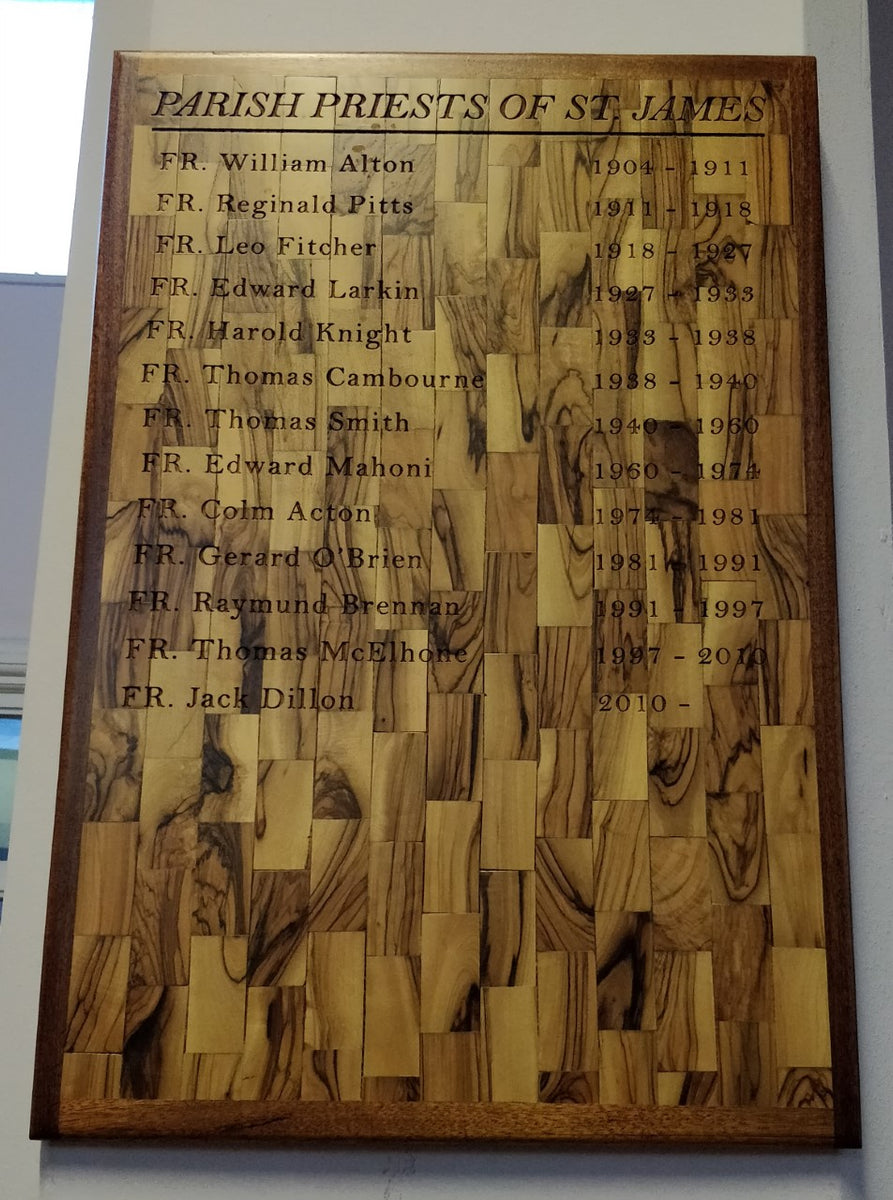 PARISH PRIESTS OF ST. JAMES
FR. William Alton 1904 - 1911
FR. Reginald Pitts 1911 - 1918
FR. Leo Fitcher 1918 - 1927
FR. Edward Larkin 1927 - 1933
FR. Harold Knight 1933 - 1938
FR. Thomas Cambourne 1938 - 1940
FR. Thomas Smith 1940 - 1960
FR. Edward Mahoni 1960 - 1974
FR. Colm Acton 1974 - 1981
FR. Gerard O'Brien 1981 - 1991
FR. Raymund Brennan 1991 - 1997
FR. Thomas McElhone 1997 - 2010
FR. Jack Dillon 2010 -